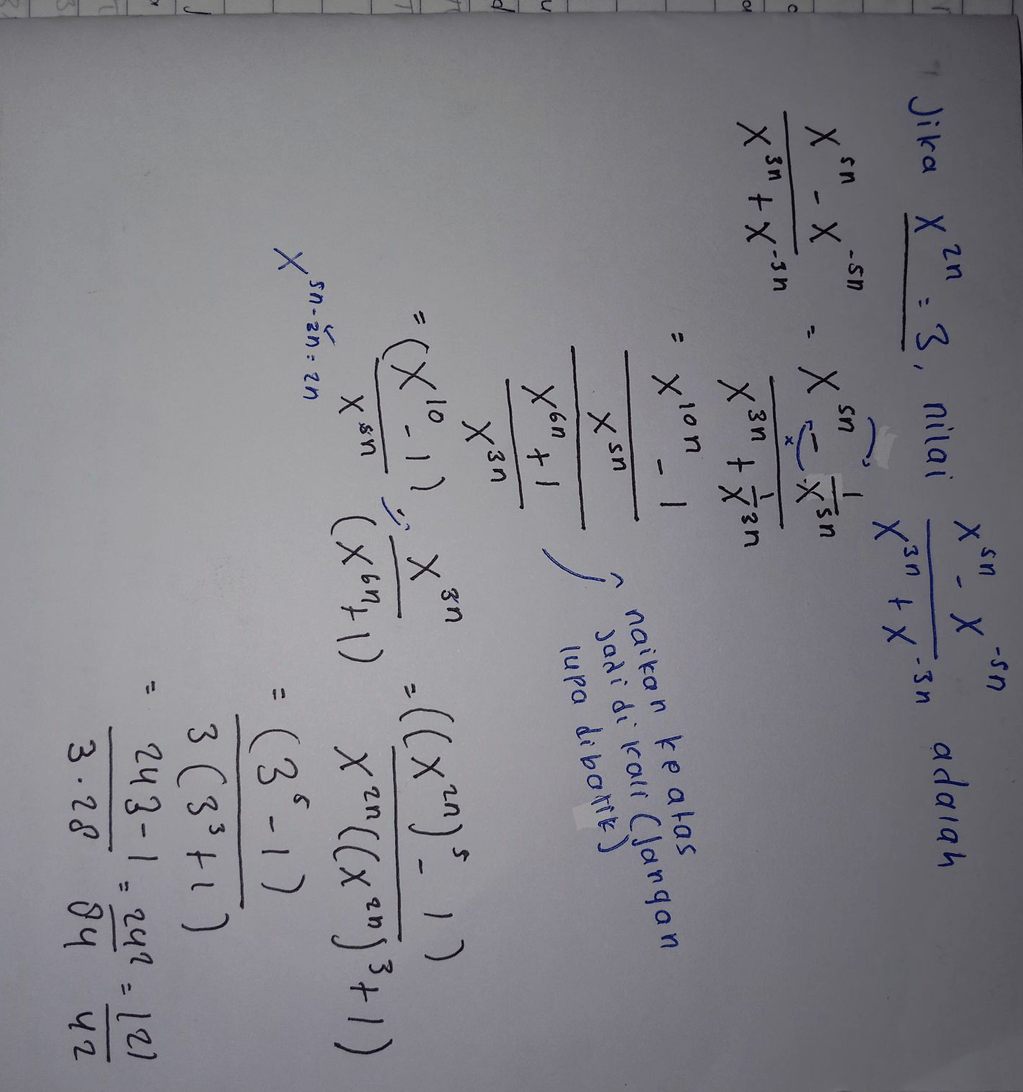 Jika x^2n = 3, nilai (x^5n - x^-5n)/(x^3n + x^-3n) adalah
(x^5n - x^-5n)/(x^3n + x^-3n) = (x^5n - 1/x^5n)/(x^3n + 1/x^3n)
= ((x^10n - 1)/x^5n)/((x^6n + 1)/x^3n)
naikan ke atas
jadi di kali (jangan
lupa dibalik)
= (x^10 - 1)/x^5n · x^3n/(x^6n + 1) = ((x^2n)^5 - 1)/(x^2n((x^2n)^3 + 1))
x^5n-3n = 2n
= (3^5 - 1)/(3(3^3 + 1))
= (243 - 1)/(3 · 28) = 242/84 = 121/42